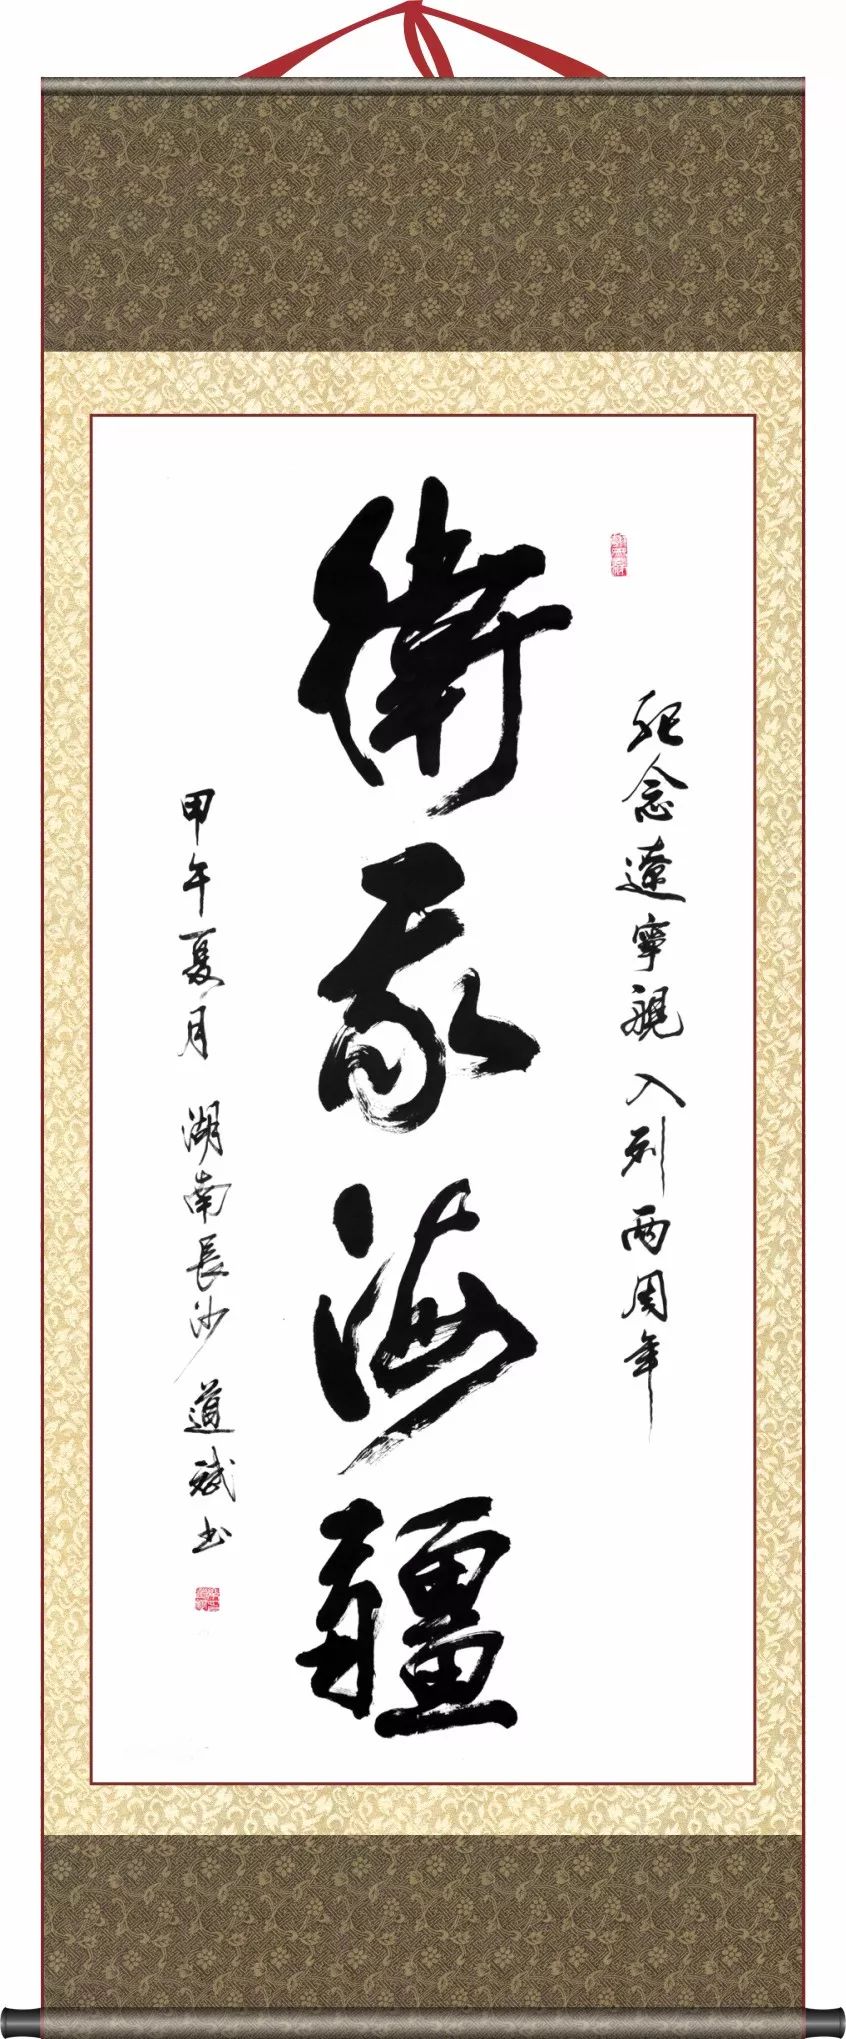 紀念遼寧舰入列兩周年
衛我海疆
甲午夏月 湖南長沙 道斌书